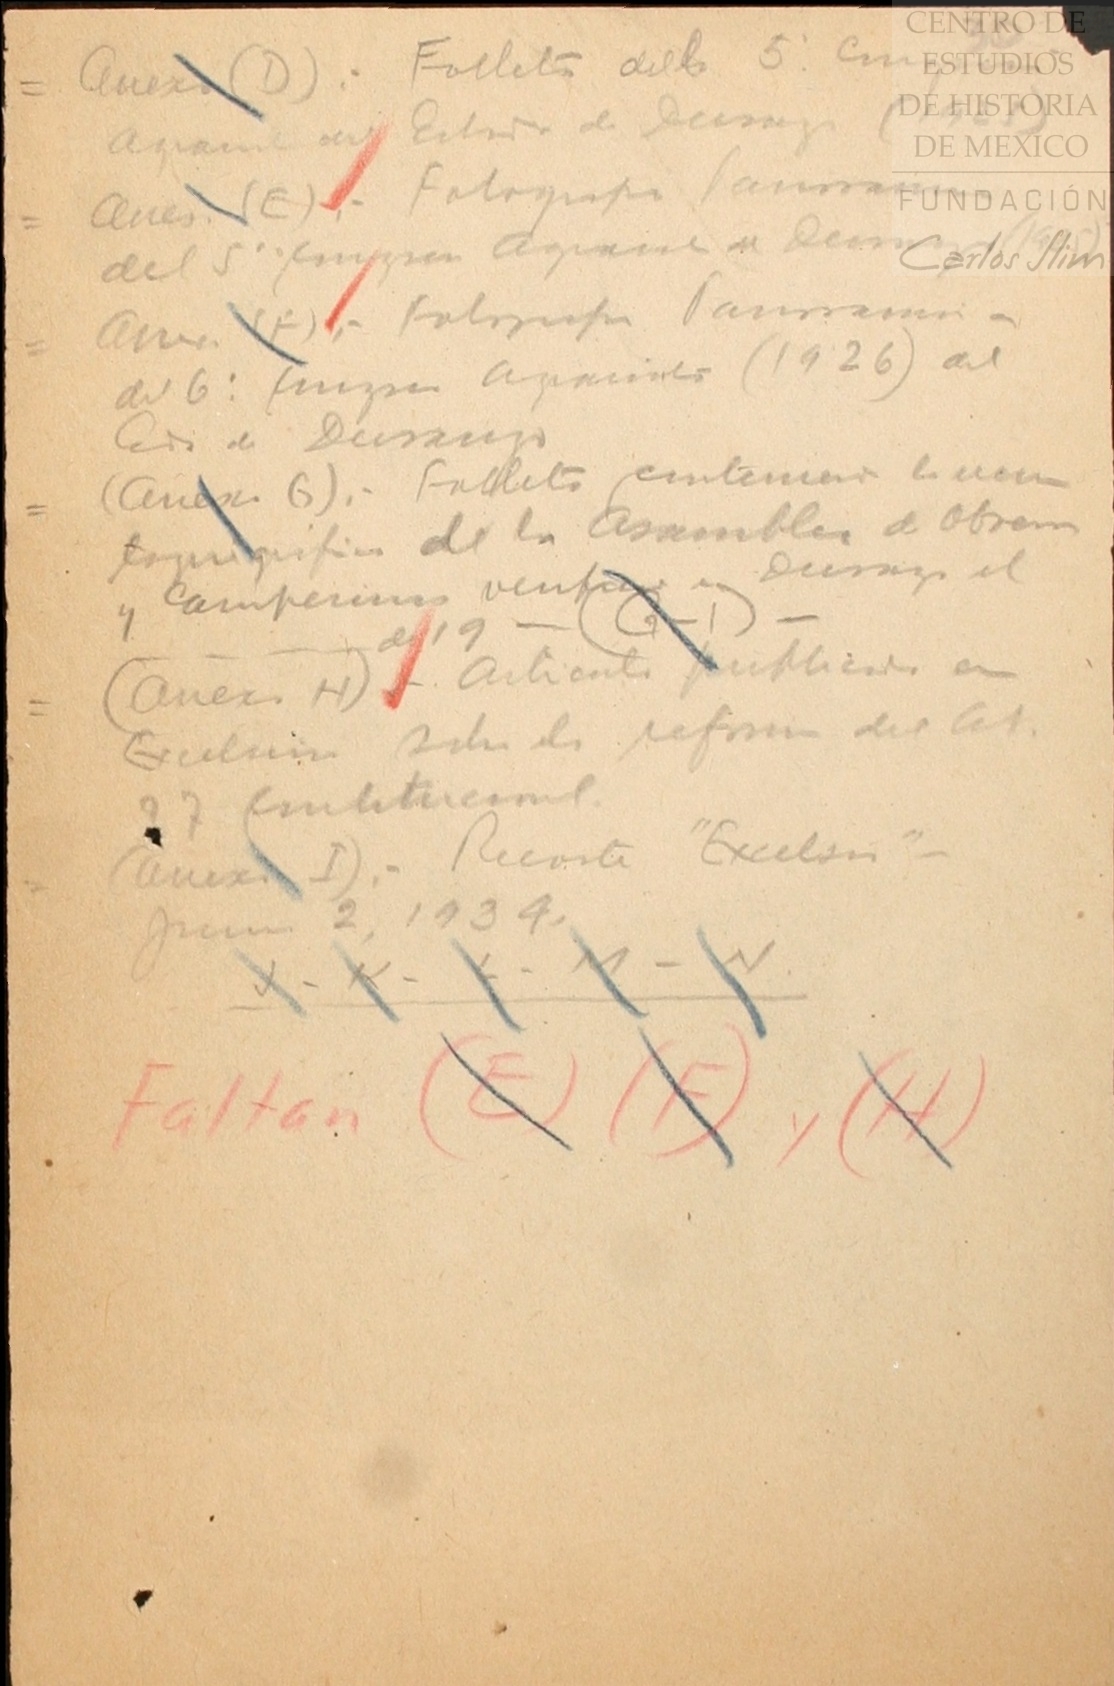 CENTRO DE
ESTUDIOS
DE HISTORIA
DE MEXICO
FUNDACIÓN
Carlos Slim
= Anexo (D).- Folleto del 5º
Agrario del Estado de Durango
= Anexo (E).- Fotografia Panoramica
del 5º Congreso Agrario de Durango
= Anexo (F).- Fotografia Panoramica
del 6º Congreso Agrarista (1926) del
Edo de Durango
= (Anexo G).- Folleto conteniendo la
taquigrafica de la Asamblea de Obreros
y Campesinos en Durango el
de 19 — (G-1) —
= (Anexo H).- Articulo publicado en
Excelsior sobre la reforma del Art.
27 Constitucional.
= (Anexo I).- Recorte "Excelsior" -
Junio 2, 1934.
J - K - L - M - N.
Faltan (E) (F) y (H)